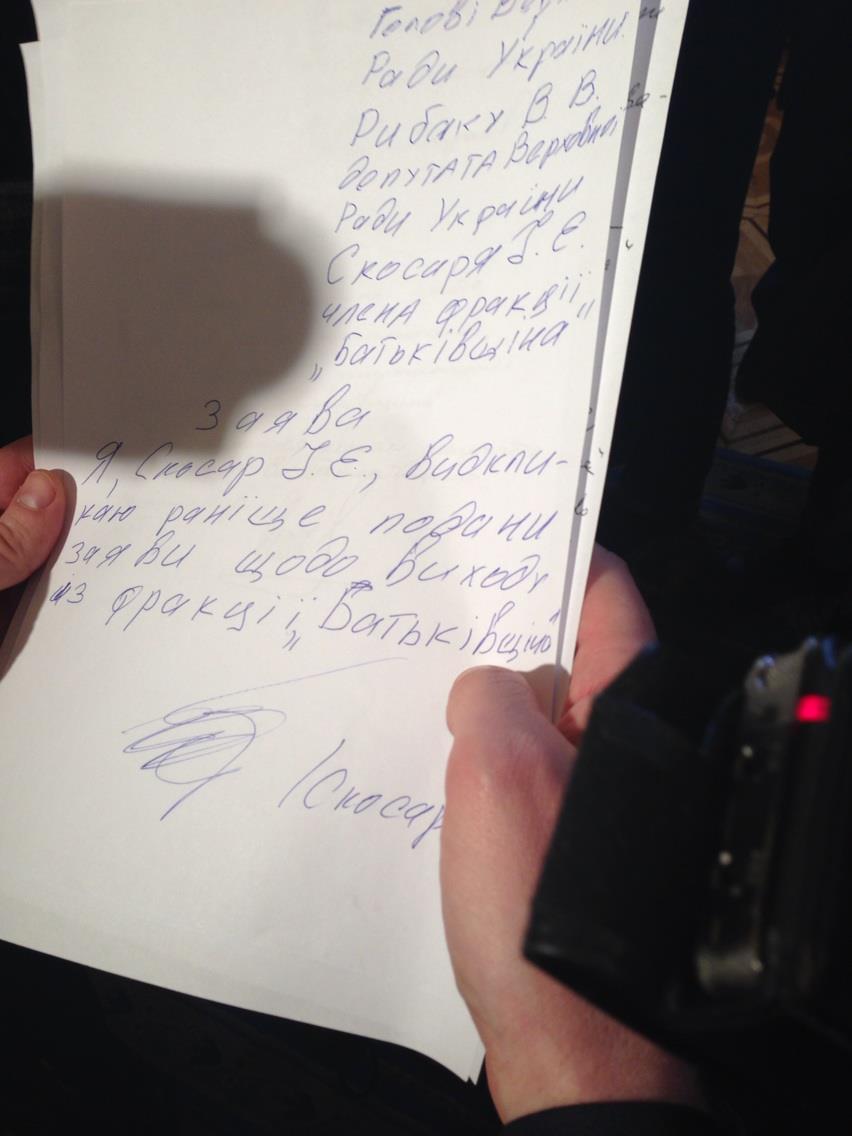 Голові Вер
Ради України
Рибаку В. В.
депутата Верховної
Ради України
Скосаря І. Є.
члена фракції
„Батьківщіна"
Заява
Я, Скосар І. Є., видкли-
каю раніще подани
заяви щодо виходу
із фракції „Батьківщіна"
/Скосар